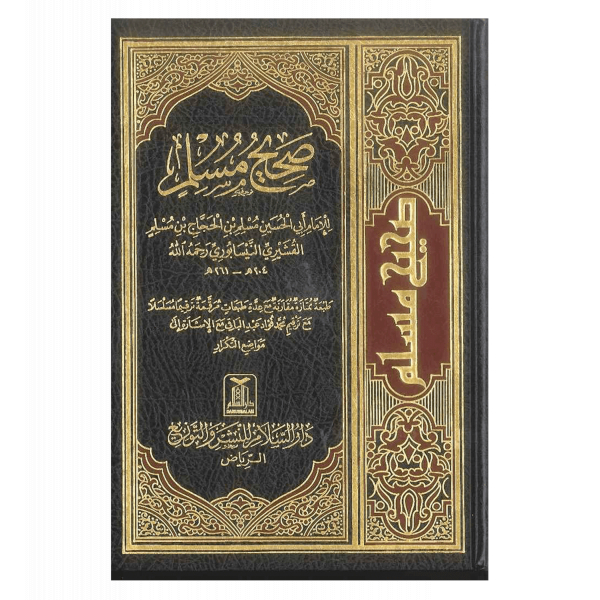 صحيح مسلم
للإمام أبي الحسين مسلم بن الحجاج بن مسلم
القشيري النيسابوري رحمه الله
٢٠٤هـ – ٢٦١هـ
طبعة ممتازة مقارنة مع عدة طبعات مرقمة ترقيما مسلسلا
مع ترقيم محمد فؤاد عبد الباقي مع الإشارة إلى
مواضع التكرار
دار السلام
DARUSSALAM
دار السلام للنشر والتوزيع
الرياض
صحيح مسلم